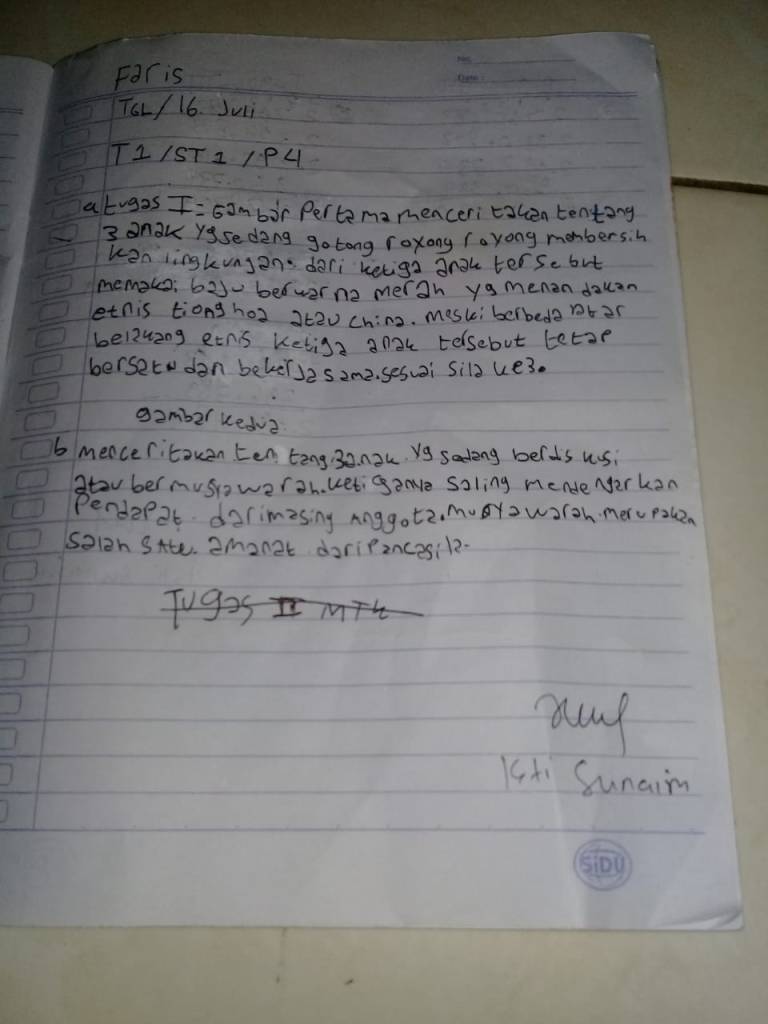 No.
Date:
Faris
TGL/16 Juli
T1/ST1/P4
a tugas I = Gambar Pertama menceritakan tentang
3 anak yg sedang gotong royong royong membersih
kan lingkungan. dari ketiga anak tersebut
memakai baju berwarna merah yg menandakan
etnis tionghoa atau china. meski berbeda latar
belakang etnis ketiga anak tersebut tetap
bersatu dan bekerja sama. sesuai sila ke3.
gambar kedua
b menceritakan tentang 3 anak yg sedang berdiskusi
atau bermusyawarah. ketiganya saling mendengarkan
Pendapat dari masing Anggota. musyawarah merupakan
salah satu amanat dari Pancasila.
Tugas II MTK
Sunaim
SiDU